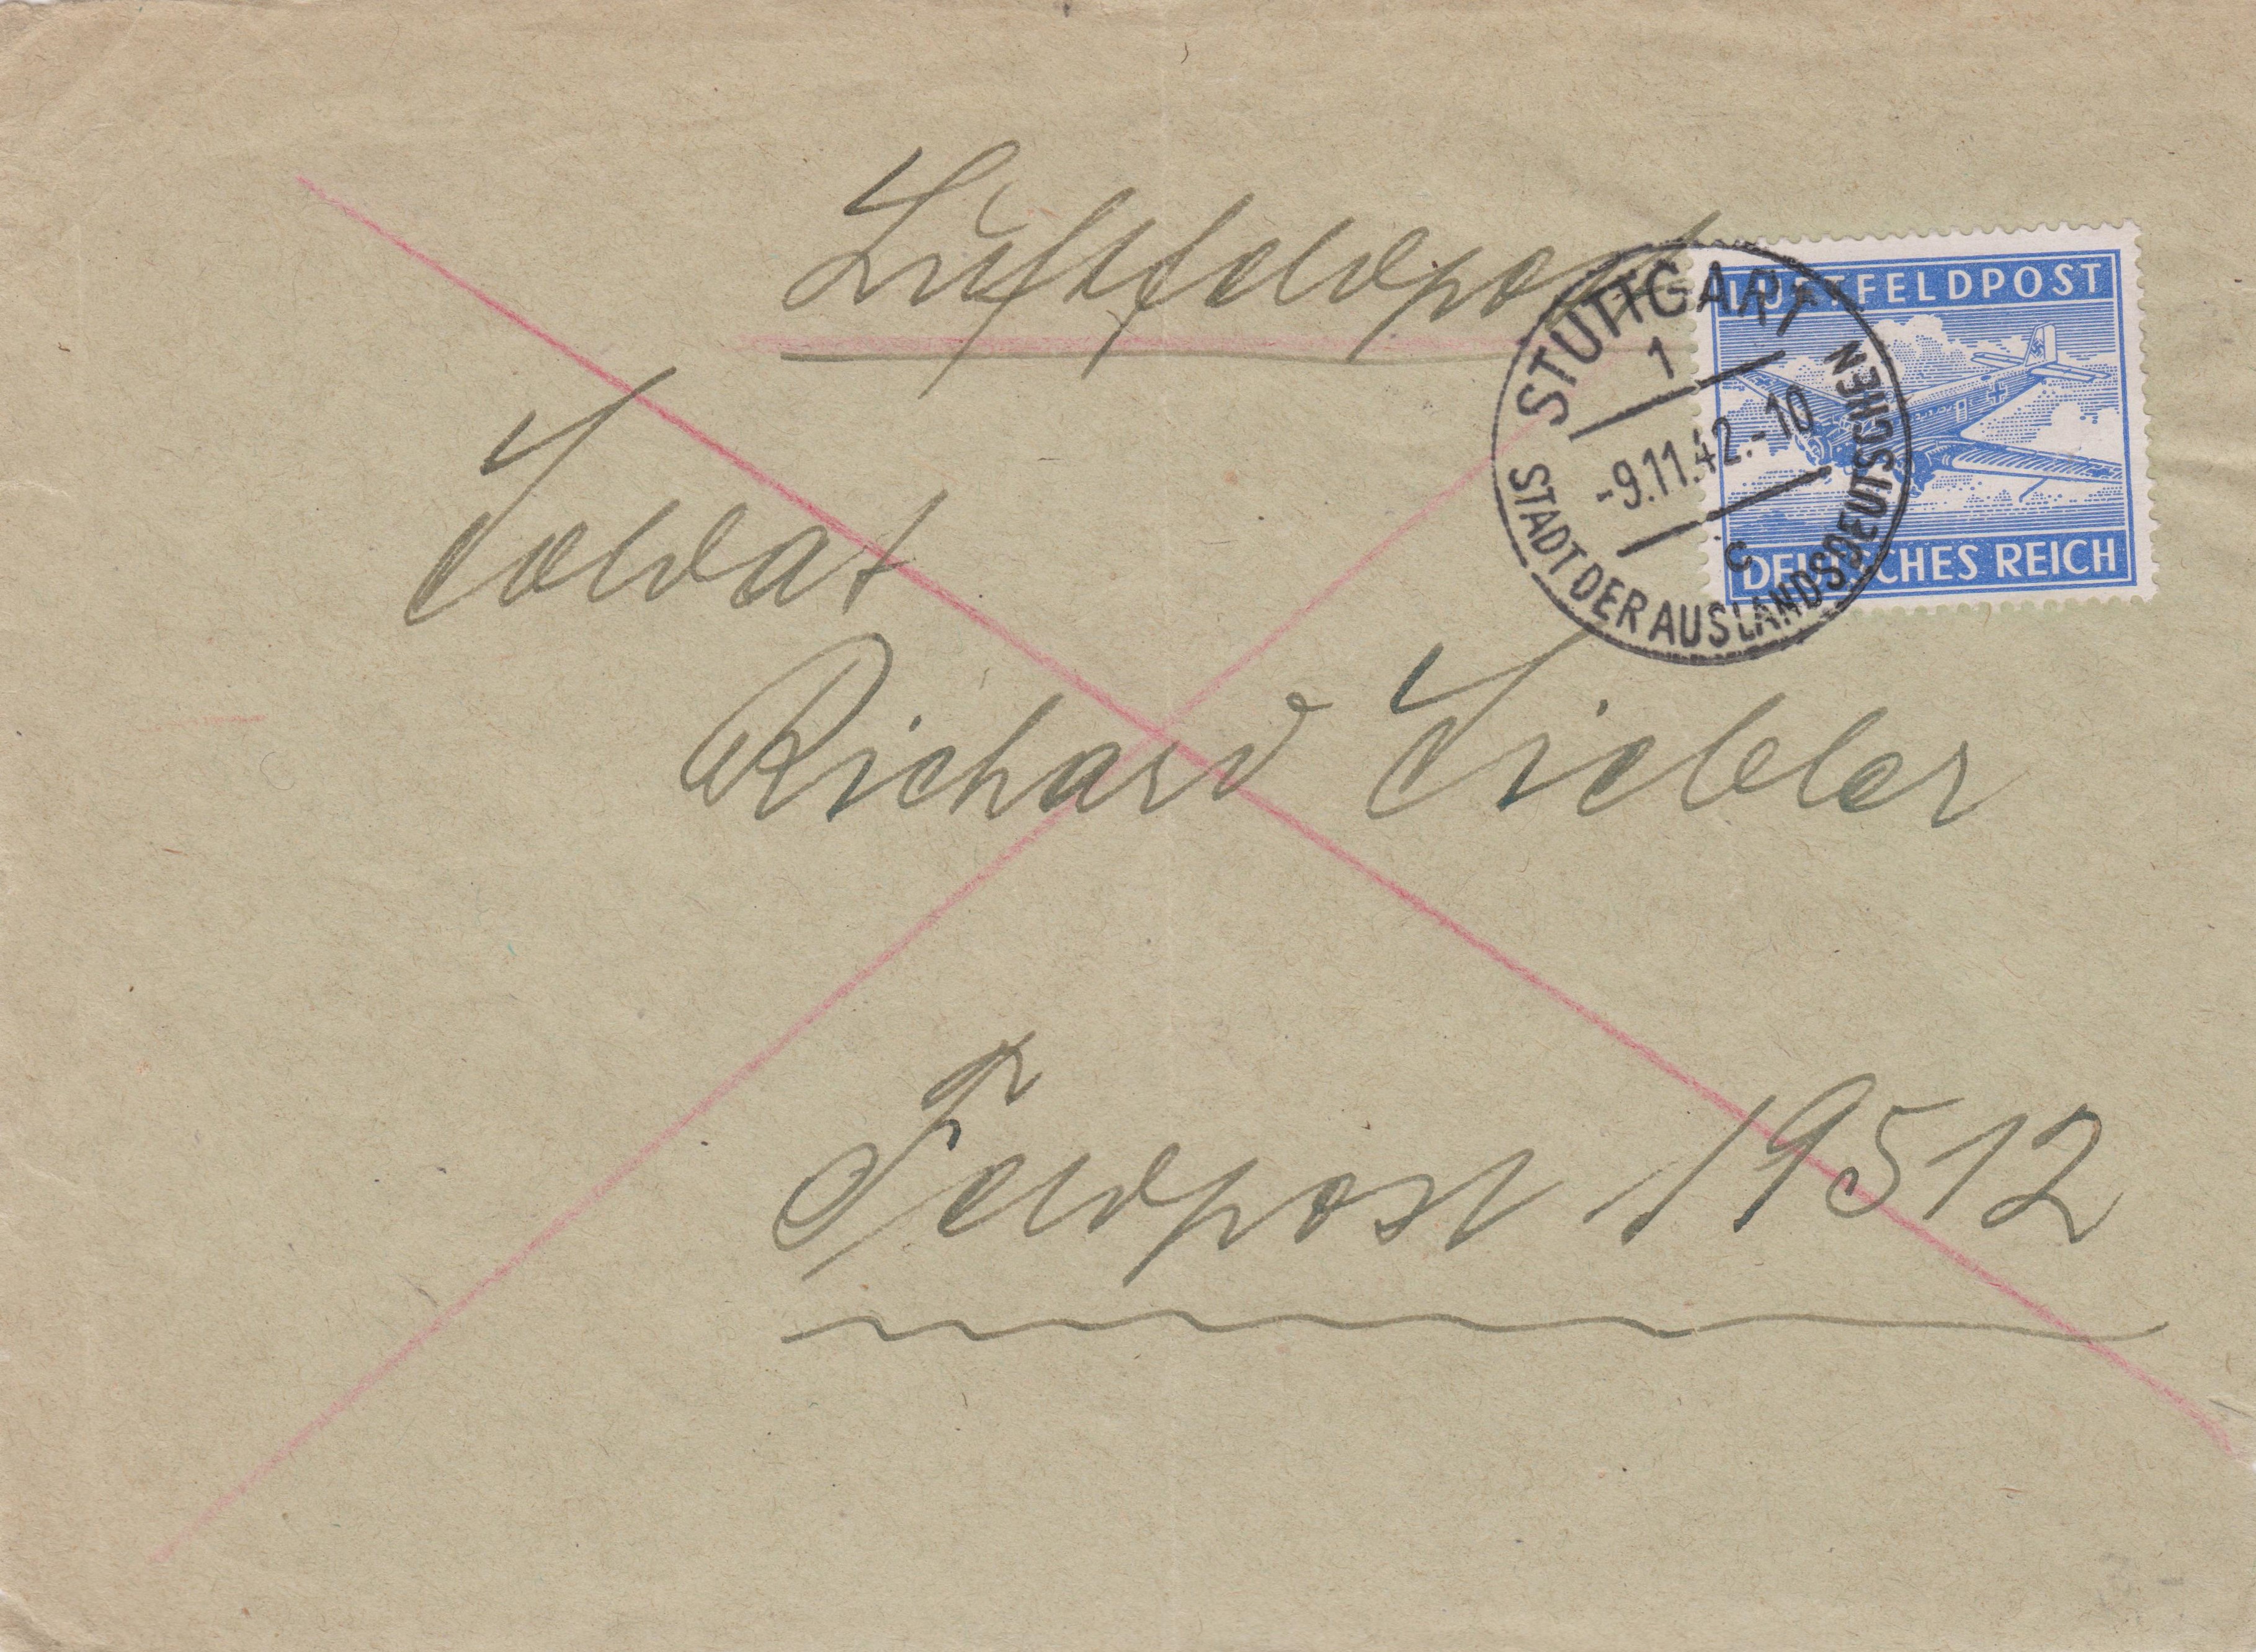 Luftfeldpost
LUFTFELDPOST
DEUTSCHES REICH
STUTTGART
1
-9.11.42.-10
c
STADT DER AUSLANDSDEUTSCHEN
Soldat
Richard Siebler
Feldpost 19512